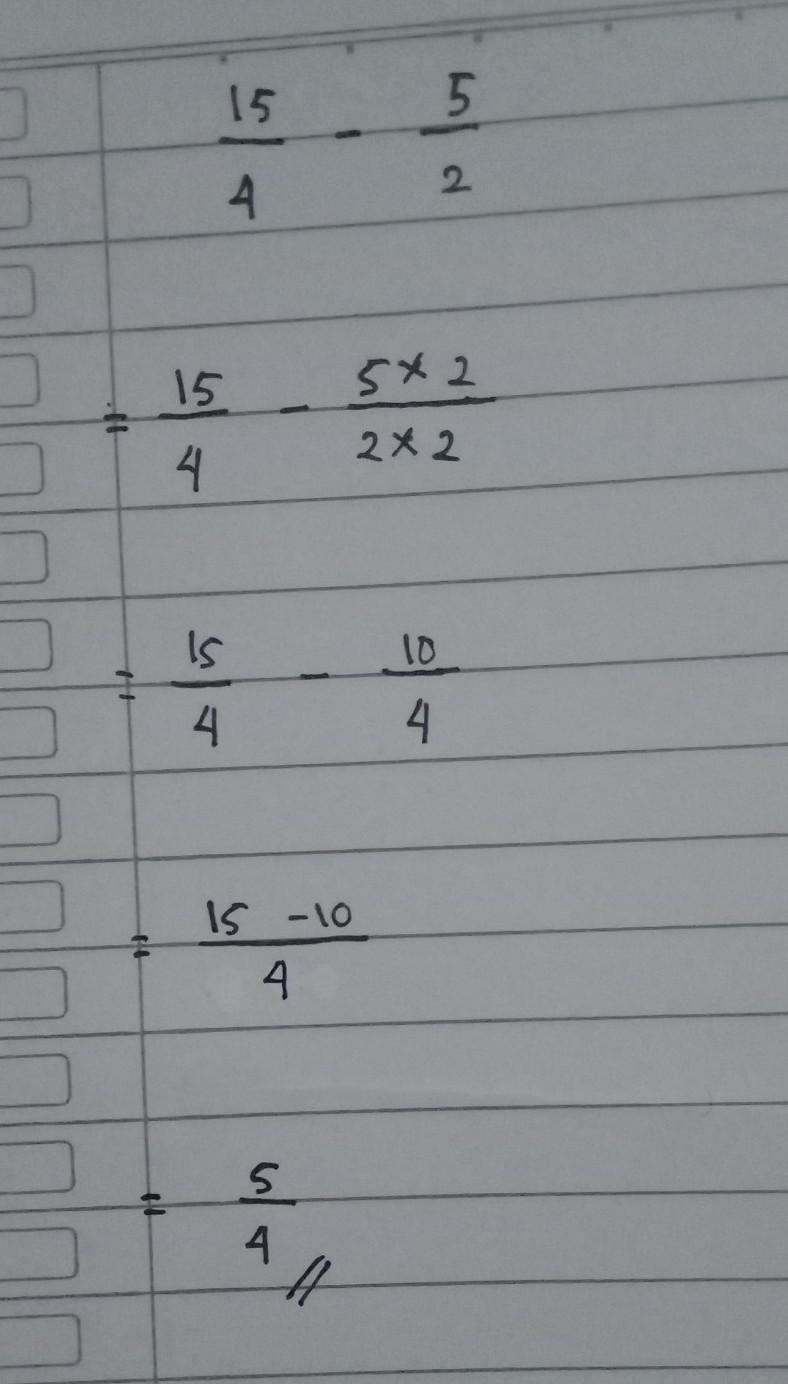 15/4 - 5/2
= 15/4 - 5×2/2×2
= 15/4 - 10/4
= 15 -10/4
= 5/4 //